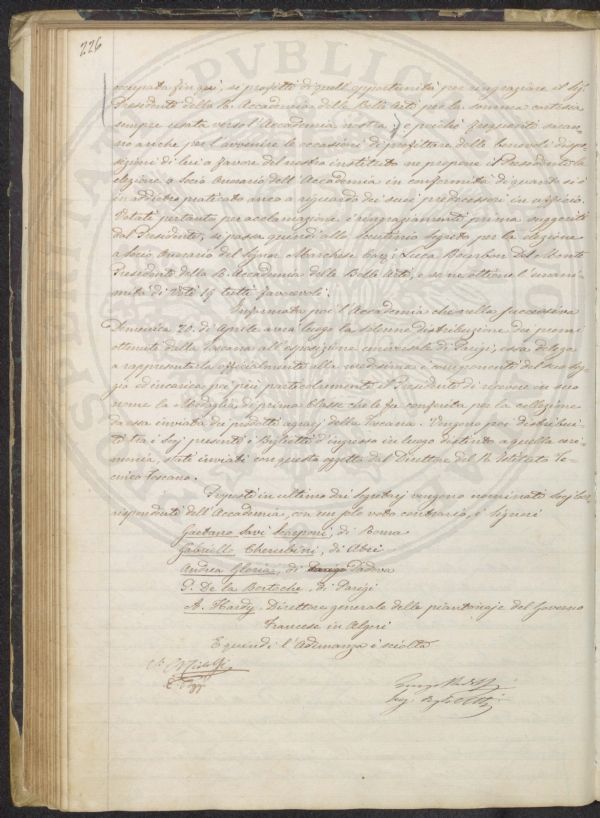 226
occupata fin quì, si profitti di quell'opportunità per ringraziare il Sig.
Presidente della R. Accademia delle Belle Arti per la somma cortesia
sempre usata verso l'Accademia nostra; e poichè frequenti saran-
no anche per l'avvenire le occasioni di profittare delle benevoli dispo-
sizioni di lui a favore del nostro instituto ne propone il Presidente la
elezione a Socio Onorario dell'Accademia in conformità di quanto si è
in addietro praticato anco a riguardo dei suoi predecessori in uffizio.
Votati pertanto per acclamazione i ringraziamenti prima suggeriti
dal Presidente, si passa quindi allo scrutinio segreto per la elezione
a Socio Onorario del Signor Marchese Cav. Luca Bourbon Del Monte
Presidente della R. Accademia delle Belle Arti, e se ne ottiene l'unani-
mità di Voti 19 tutti favorevoli.
Informata poi l'Accademia che nella successiva
Domenica 20. di Aprile avrà luogo la solenne distribuzione dei premi
ottenuti dalla Toscana all'esposizione universale di Parigi, essa delega
a rappresentarla officialmente alla medesima i componenti del suo Seg-
gio ed incarica poi più particolarmente il Presidente di ricevere in suo
nome la Medaglia di prima Classe che le fu conferita per la collezione
da essa inviata dei prodotti agrarj della Toscana. Vengono poi distribui-
ti tra i Socj presenti i Biglietti d'ingresso in luogo distinto a quella ceri-
monia, stati inviati con questo oggetto dal Direttore del R. Istituto Te-
cnico Toscano.
Proposti in ultimo dai Segretarj vengono nominati Socj Cor-
rispondenti dell'Accademia, con un solo voto contrario, i Signori
Gaetano Savi Scarponi, di Roma
Gabriello Cherubini, di Atri
Andrea Gloria, di Padova
G. De la Bertoche, di Parigi
A. Hardy, Direttore generale della piantonaje del Governo
Francese in Algeri
E quindi l'Adunanza è sciolta